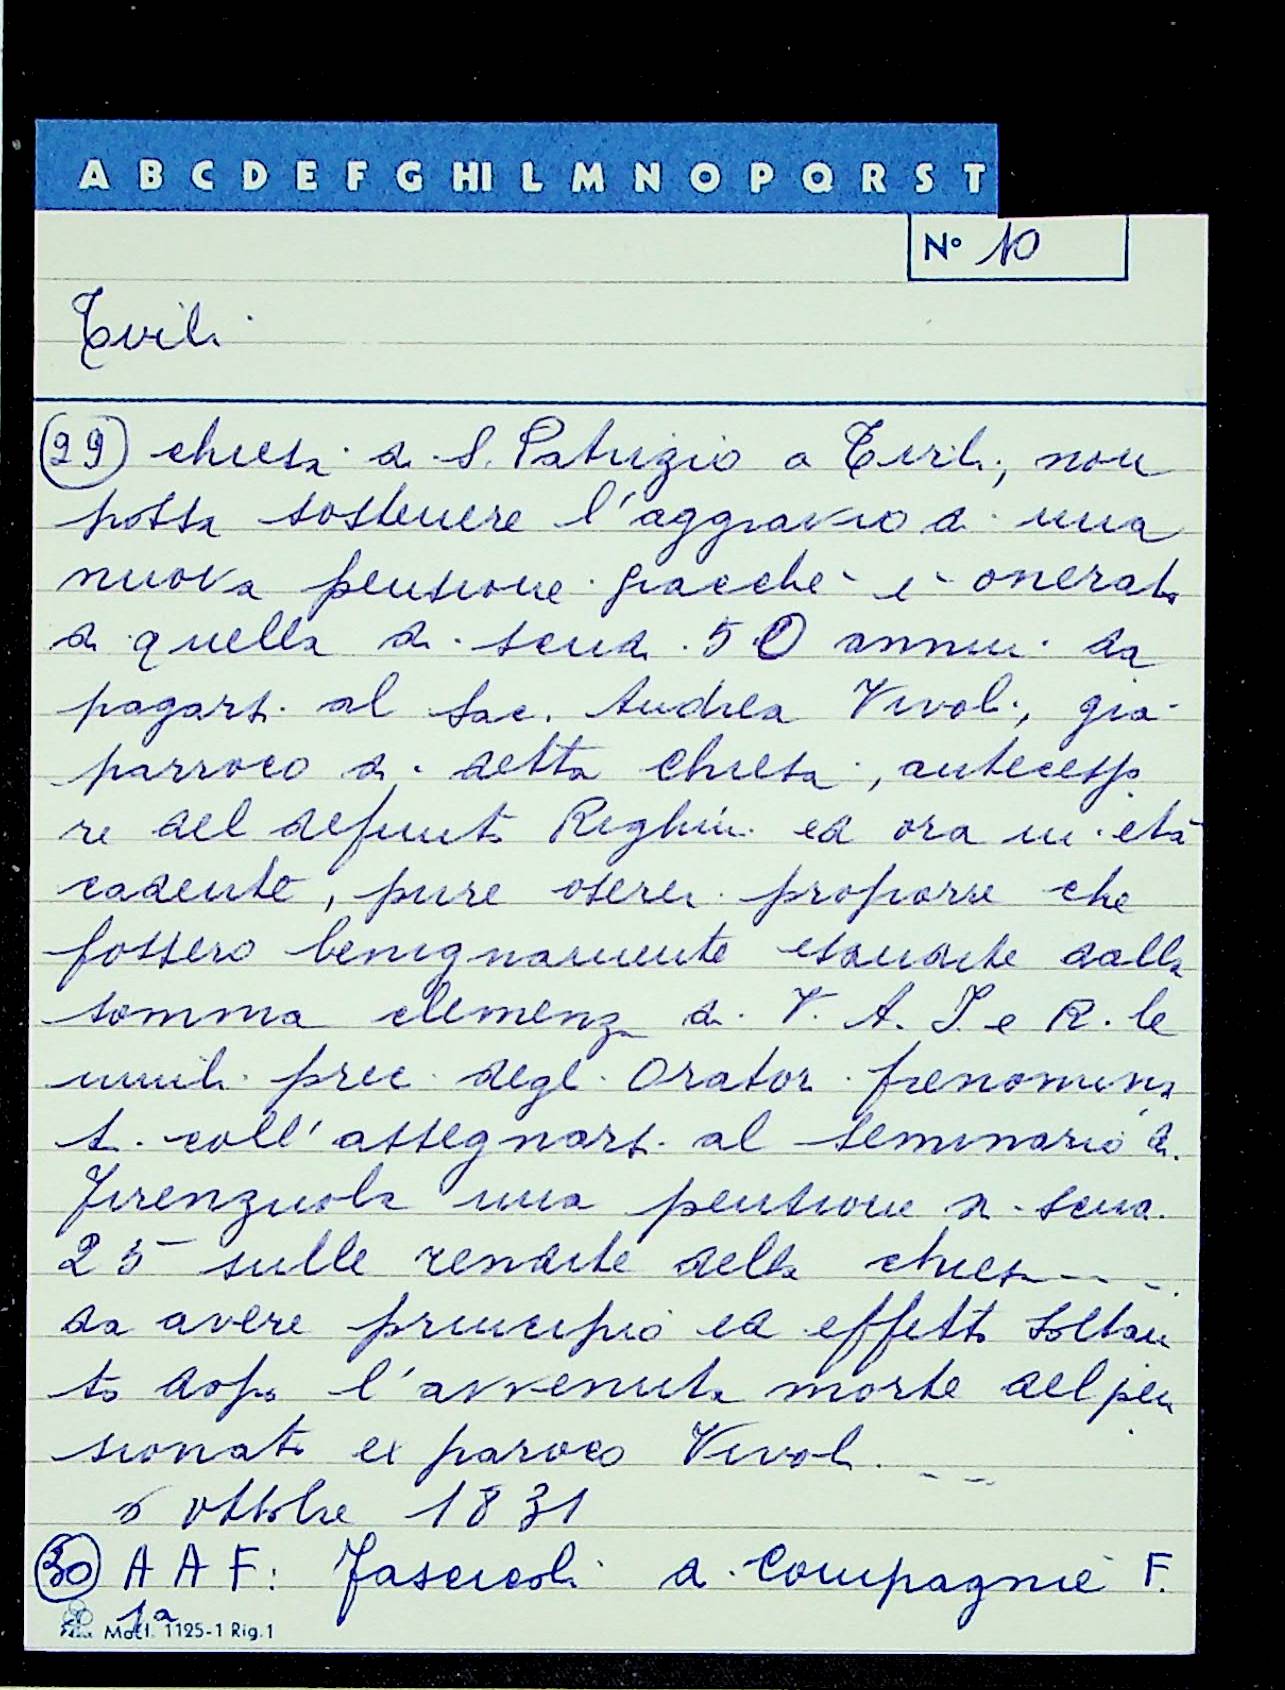 A B C D E F G HI L M N O P Q R S T
N° 10
Tirli
29 chiesa di S. Patrizio a Tirli, non
possa sostenere l'aggravio di una
nuova pensione giacchè è onerata
di quella di scudi 50 annui da
pagarsi al Sac. Andrea Vivoli, già
parroco di detta chiesa, antecesso
re del defunto Righini ed ora in età
cadente, pure oserei proporre che
fossero benignamente esaudite dalla
somma clemenza di V. A. I. e R. le
umili preci degli Oratori prenomina
ti coll'assegnarsi al seminario di
Firenzuola una pensione di scudi
25 sulle rendite della chiesa ----
da avere principio ed effetto soltan
to dopo l'avvenuta morte del pen
sionato ex paroco Vivoli. ---
6 ottobre 1831
30 A A F: Fascicoli di Compagnie F.
1a
Mod. 1125-1 Rig.1